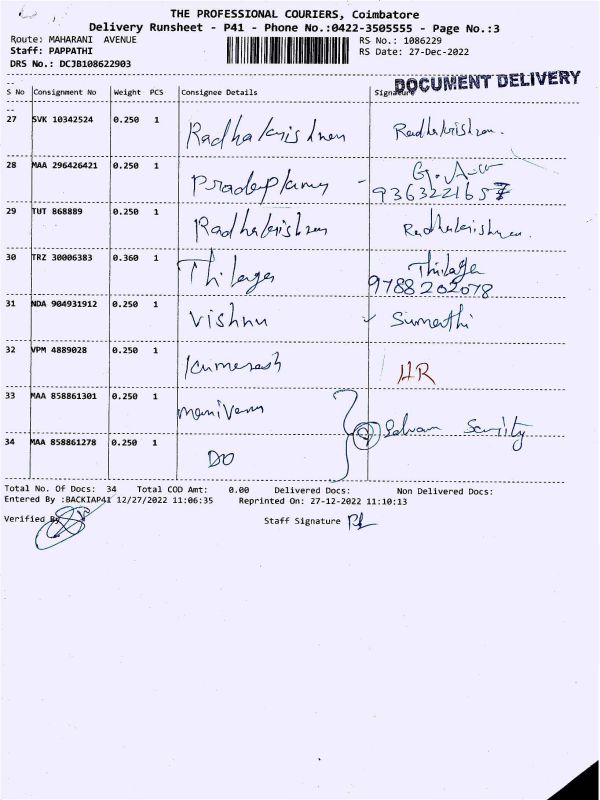 THE PROFESSIONAL COURIERS, Coimbatore
Delivery Runsheet - P41 - Phone No.:0422-3505555 - Page No.:3
Route: MAHARANI AVENUE RS No.: 1086229
Staff: PAPPATHI RS Date: 27-Dec-2022
DRS No.: DCJB108622903
DOCUMENT DELIVERY
S No Consignment No Weight PCS Consignee Details Signature
27 SVK 10342524 0.250 1 Radhakrishnan Radhakrishnan.
28 MAA 296426421 0.250 1 Pradeepkumar -
9363221657
29 TUT 868889 0.250 1 Radhakrishnan Radhakrishnan.
30 TRZ 30006383 0.360 1 Thilaga Thilaga
9788202078
31 NDA 904931912 0.250 1 Vishnu Sumathi
32 VPM 4889028 0.250 1 Kumaresh HR
33 MAA 858861301 0.250 1
34 MAA 858861278 0.250 1 DO
Total No. Of Docs: 34 Total COD Amt: 0.00 Delivered Docs: Non Delivered Docs:
Entered By :BACKIAP41 12/27/2022 11:06:35 Reprinted On: 27-12-2022 11:10:13
Verified By Staff Signature